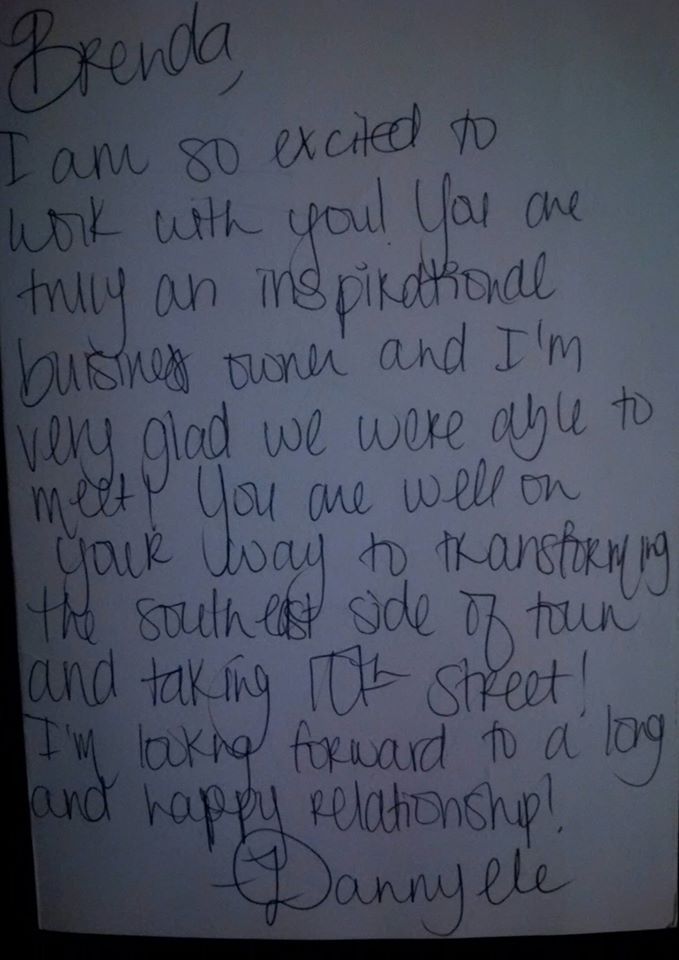 Brenda,
I am so excited to
work with you! You are
truly an inspirational
buisiness owner and I'm
very glad we were able to
meet! You are well on
your way to transforming
the southeast side of town
and taking 10th street!
I'm looking forward to a long
and happy relationship!
Dannyele